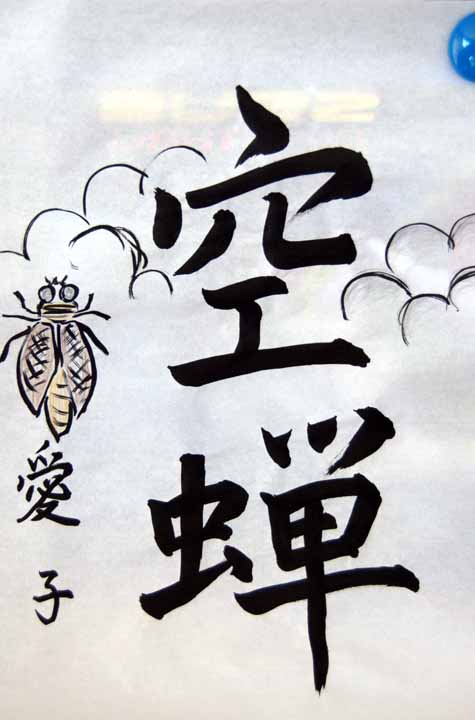 空蝉
愛子